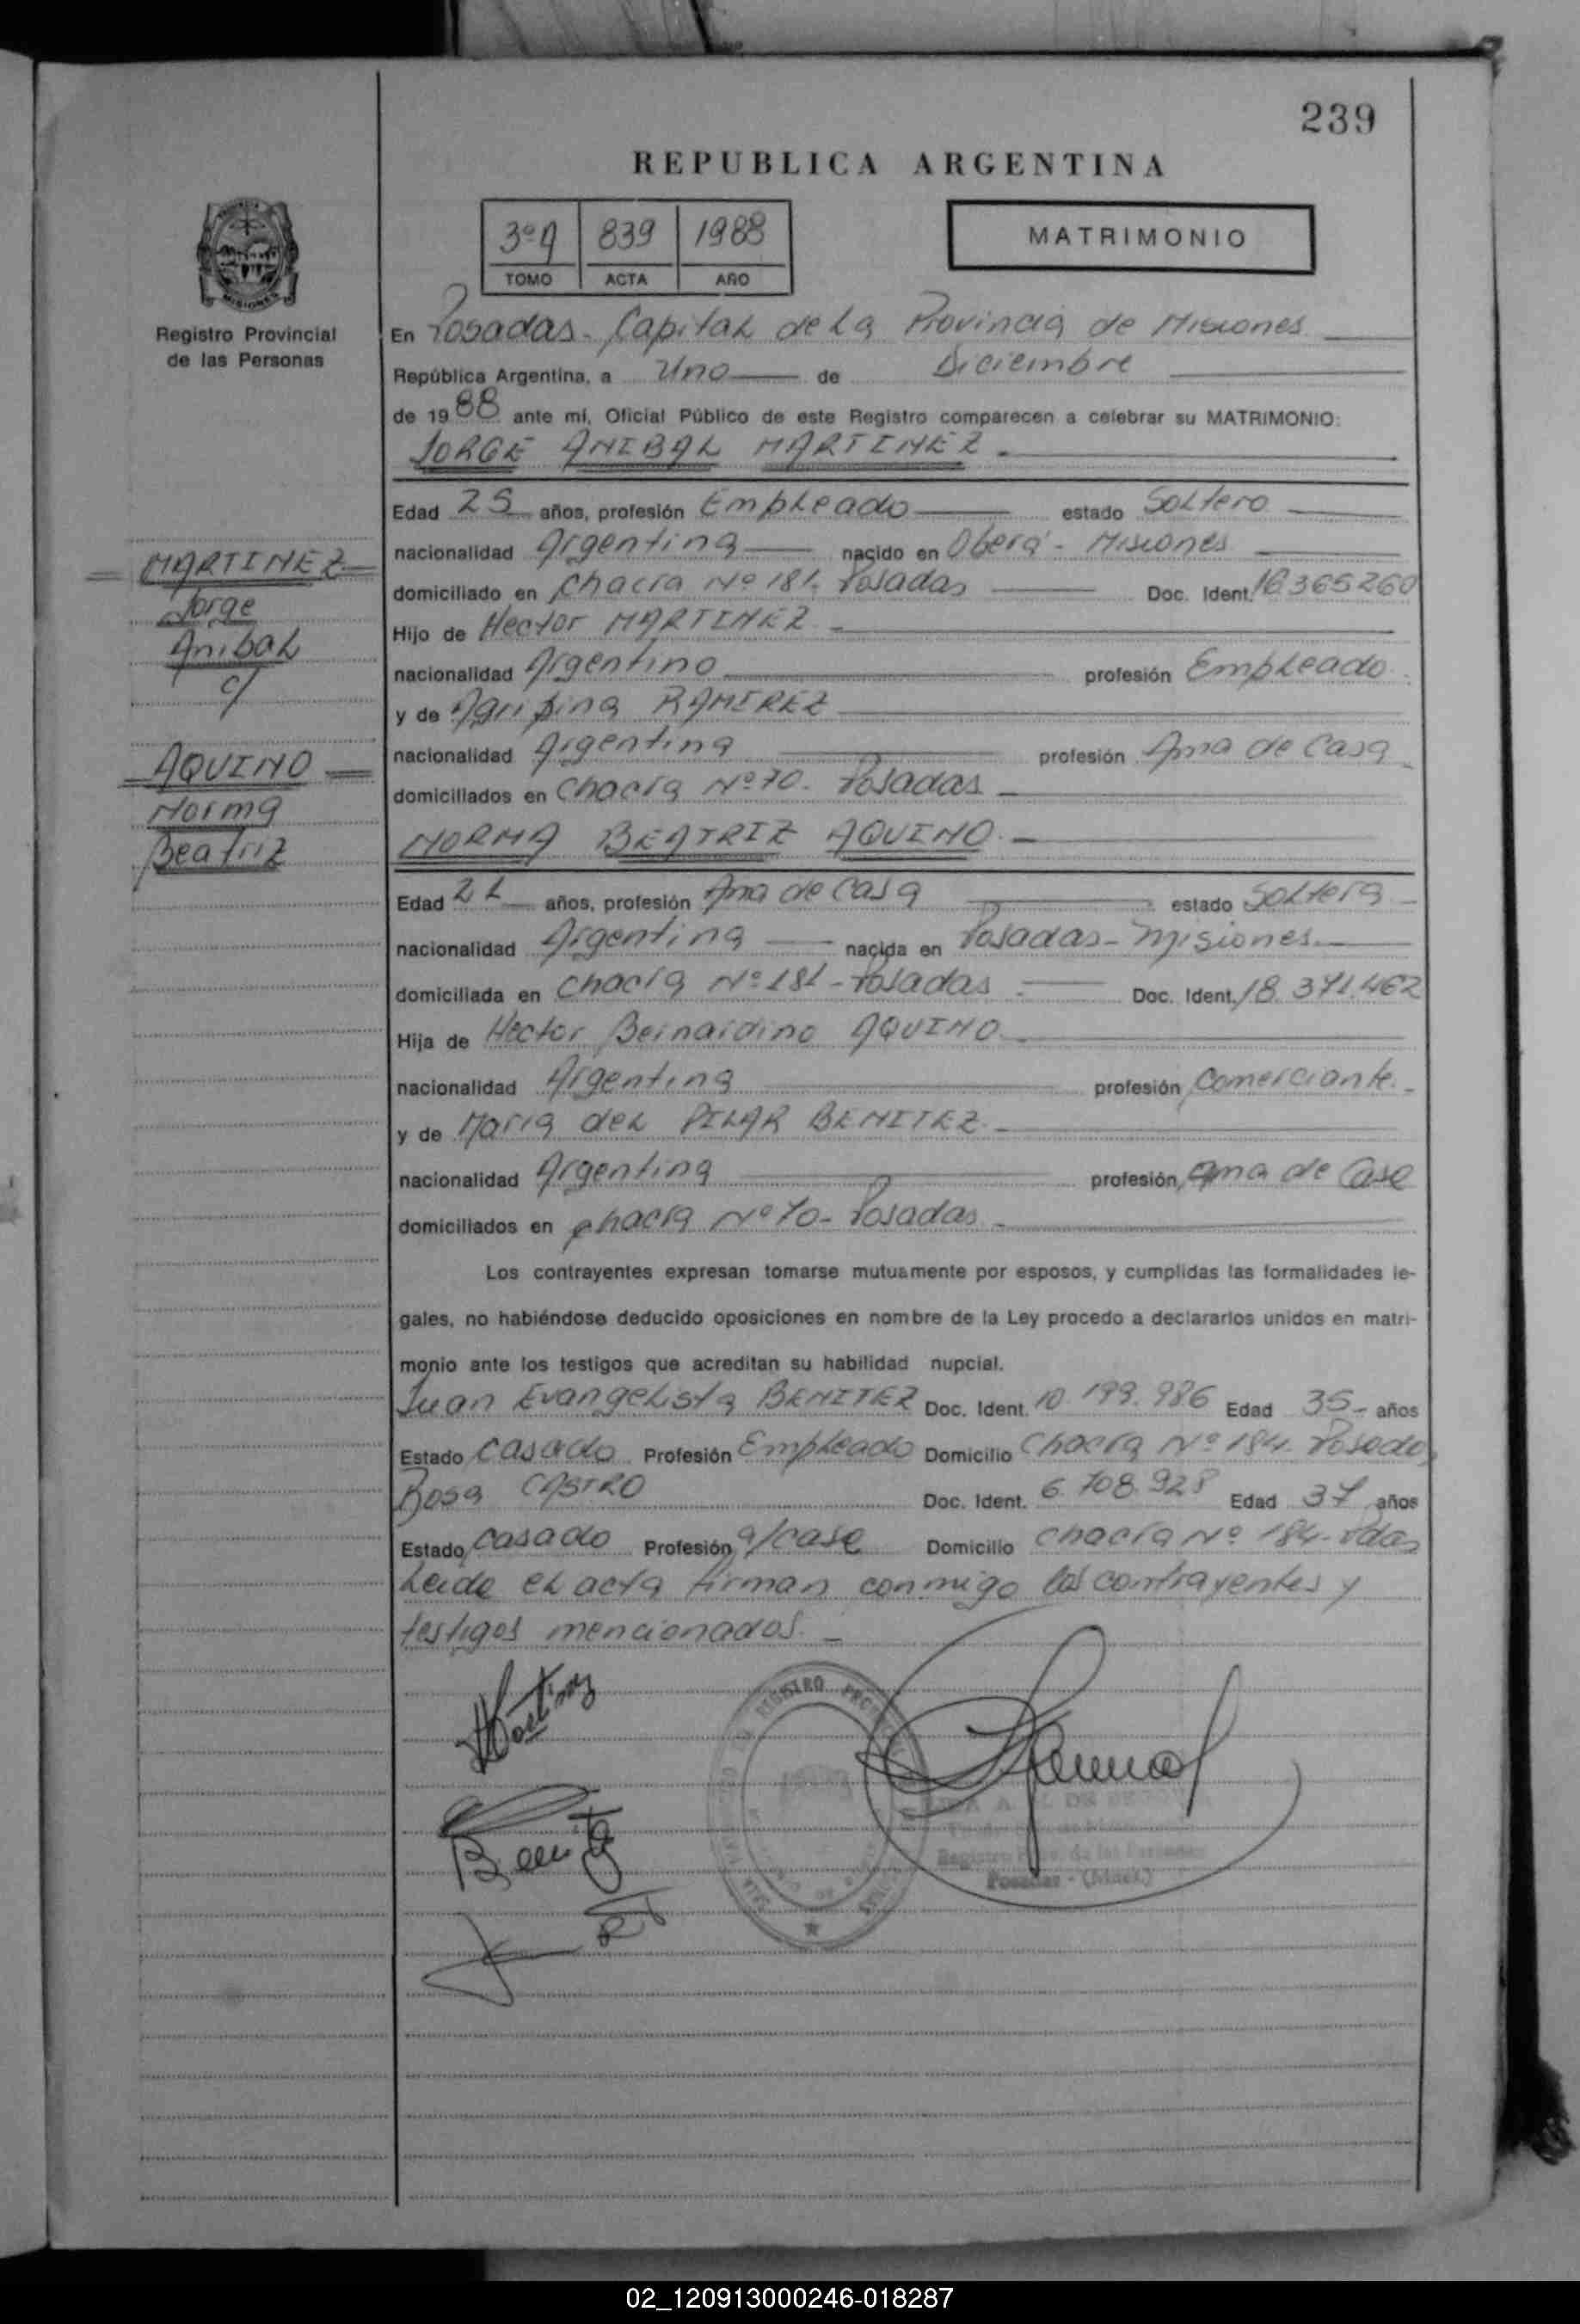 239
REPUBLICA ARGENTINA
3º A 839 1988
TOMO ACTA AÑO
MATRIMONIO
Registro Provincial
de las Personas
En Posadas - Capital de La Provincia de Misiones
República Argentina, a Uno de Diciembre
de 1988 ante mí, Oficial Público de este Registro comparecen a celebrar su MATRIMONIO:
JORGE ANIBAL MARTINEZ.
Edad 25 años, profesión Empleado estado Soltero
MARTINEZ
Jorge
Anibal
c/
AQUINO
Norma
Beatriz
nacionalidad Argentina nacido en Oberá - Misiones
domiciliado en Chacra Nº 181. Posadas Doc. Ident. 16.365260
Hijo de Hector MARTINEZ
nacionalidad Argentino profesión Empleado
y de Agripina RAMIREZ
nacionalidad Argentina profesión Ama de Casa
domiciliados en Chacra Nº 70. Posadas
NORMA BEATRIZ AQUINO.
Edad 21 años, profesión Ama de Casa estado Soltera
nacionalidad Argentina nacida en Posadas - Misiones.
domiciliada en Chacra Nº 181 - Posadas Doc. Ident. 18.371.462
Hija de Hector Bernardino AQUINO
nacionalidad Argentina profesión Comerciante.
y de Maria del PILAR BENITEZ.
nacionalidad Argentina profesión ama de Casa
domiciliados en chacra Nº 70 - Posadas
Los contrayentes expresan tomarse mutuamente por esposos, y cumplidas las formalidades le-
gales, no habiéndose deducido oposiciones en nombre de la Ley procedo a declararlos unidos en matri-
monio ante los testigos que acreditan su habilidad nupcial.
Juan Evangelista BENITEZ Doc. Ident. 10.199.986 Edad 35 - años
Estado Casado Profesión Empleado Domicilio Chacra Nº 184. Posadas
Rosa CASTRO Doc. Ident. 6.708.928 Edad 37 años
Estado Casado Profesión a/casa Domicilio Chacra Nº 184 - Pdas
Leida el acta firman conmigo los contrayentes y
testigos mencionados.
Benitez
Posadas - (Mnes.)
02_120913000246-018287